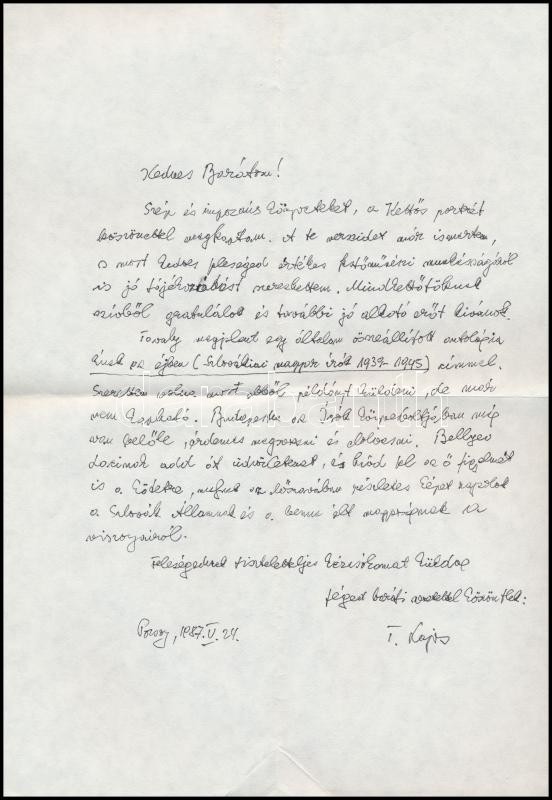 Kedves Barátom!
Szép és impozáns könyveteket, a Kettős portrét
köszönettel megkaptam. A te verseidet már ismertem,
s most kedves feleséged értékes festőművészi munkásságáról
is jó tájékozódást szerezhettem. Mindkettőtöknek
szívből gratulálok és további jó alkotó erőt kívánok.
Tavaly megjelent egy általam összeállított antológia
Ének az éjben (Szlovákiai magyar írók 1939-1945) címmel.
Szerettem volna most ebből példányt küldeni, de már
nem kapható. Budapesten az Írók Könyvesboltjában még
van belőle, érdemes megvenni és elolvasni. Bellyei
Lacinak add át üdvözletemet, és hívd fel az ő figyelmét
is a kötetre, mert az előszavában részletes képet rajzolok
a Szlovák Államnak és a benne élt magyarságnak a
viszonyairól.
Feleségednek tiszteletteljes kézcsókomat küldve
téged baráti szeretettel köszöntlek:
Pozsony, 1987. V. 24.
T. Lajos